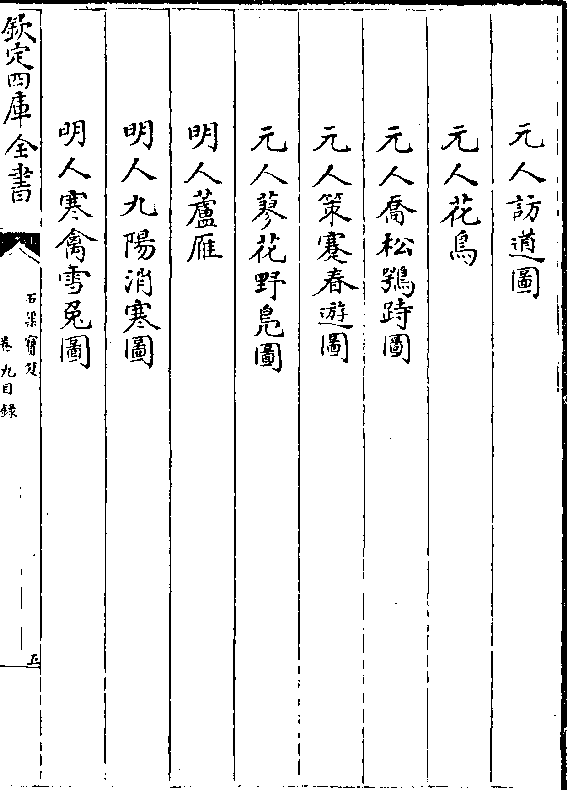 元人訪道圖
元人花鳥
元人喬松鶚跱圖
元人策蹇春遊圖
元人蓼花野鳧圖
明人蘆雁
明人九陽消寒圖
明人寒禽雪兔圖
欽定四庫全書
石渠寶笈
卷九目錄
五